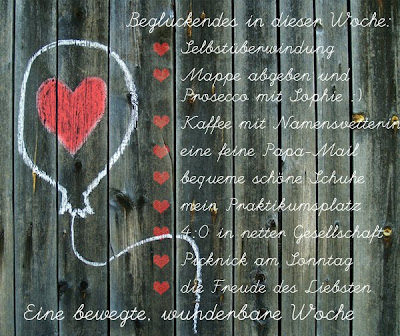 Beglückendes in dieser Woche:
Selbstüberwindung
Mappe abgeben und
Prosecco mit Sophie :)
Kaffee mit Namensvetterin
eine feine Papa-Mail
bequeme schöne Schuhe
mein Praktikumsplatz
4:0 in netter Gesellschaft
Picknick am Sonntag
die Freude des Liebsten
Eine bewegte, wunderbare Woche